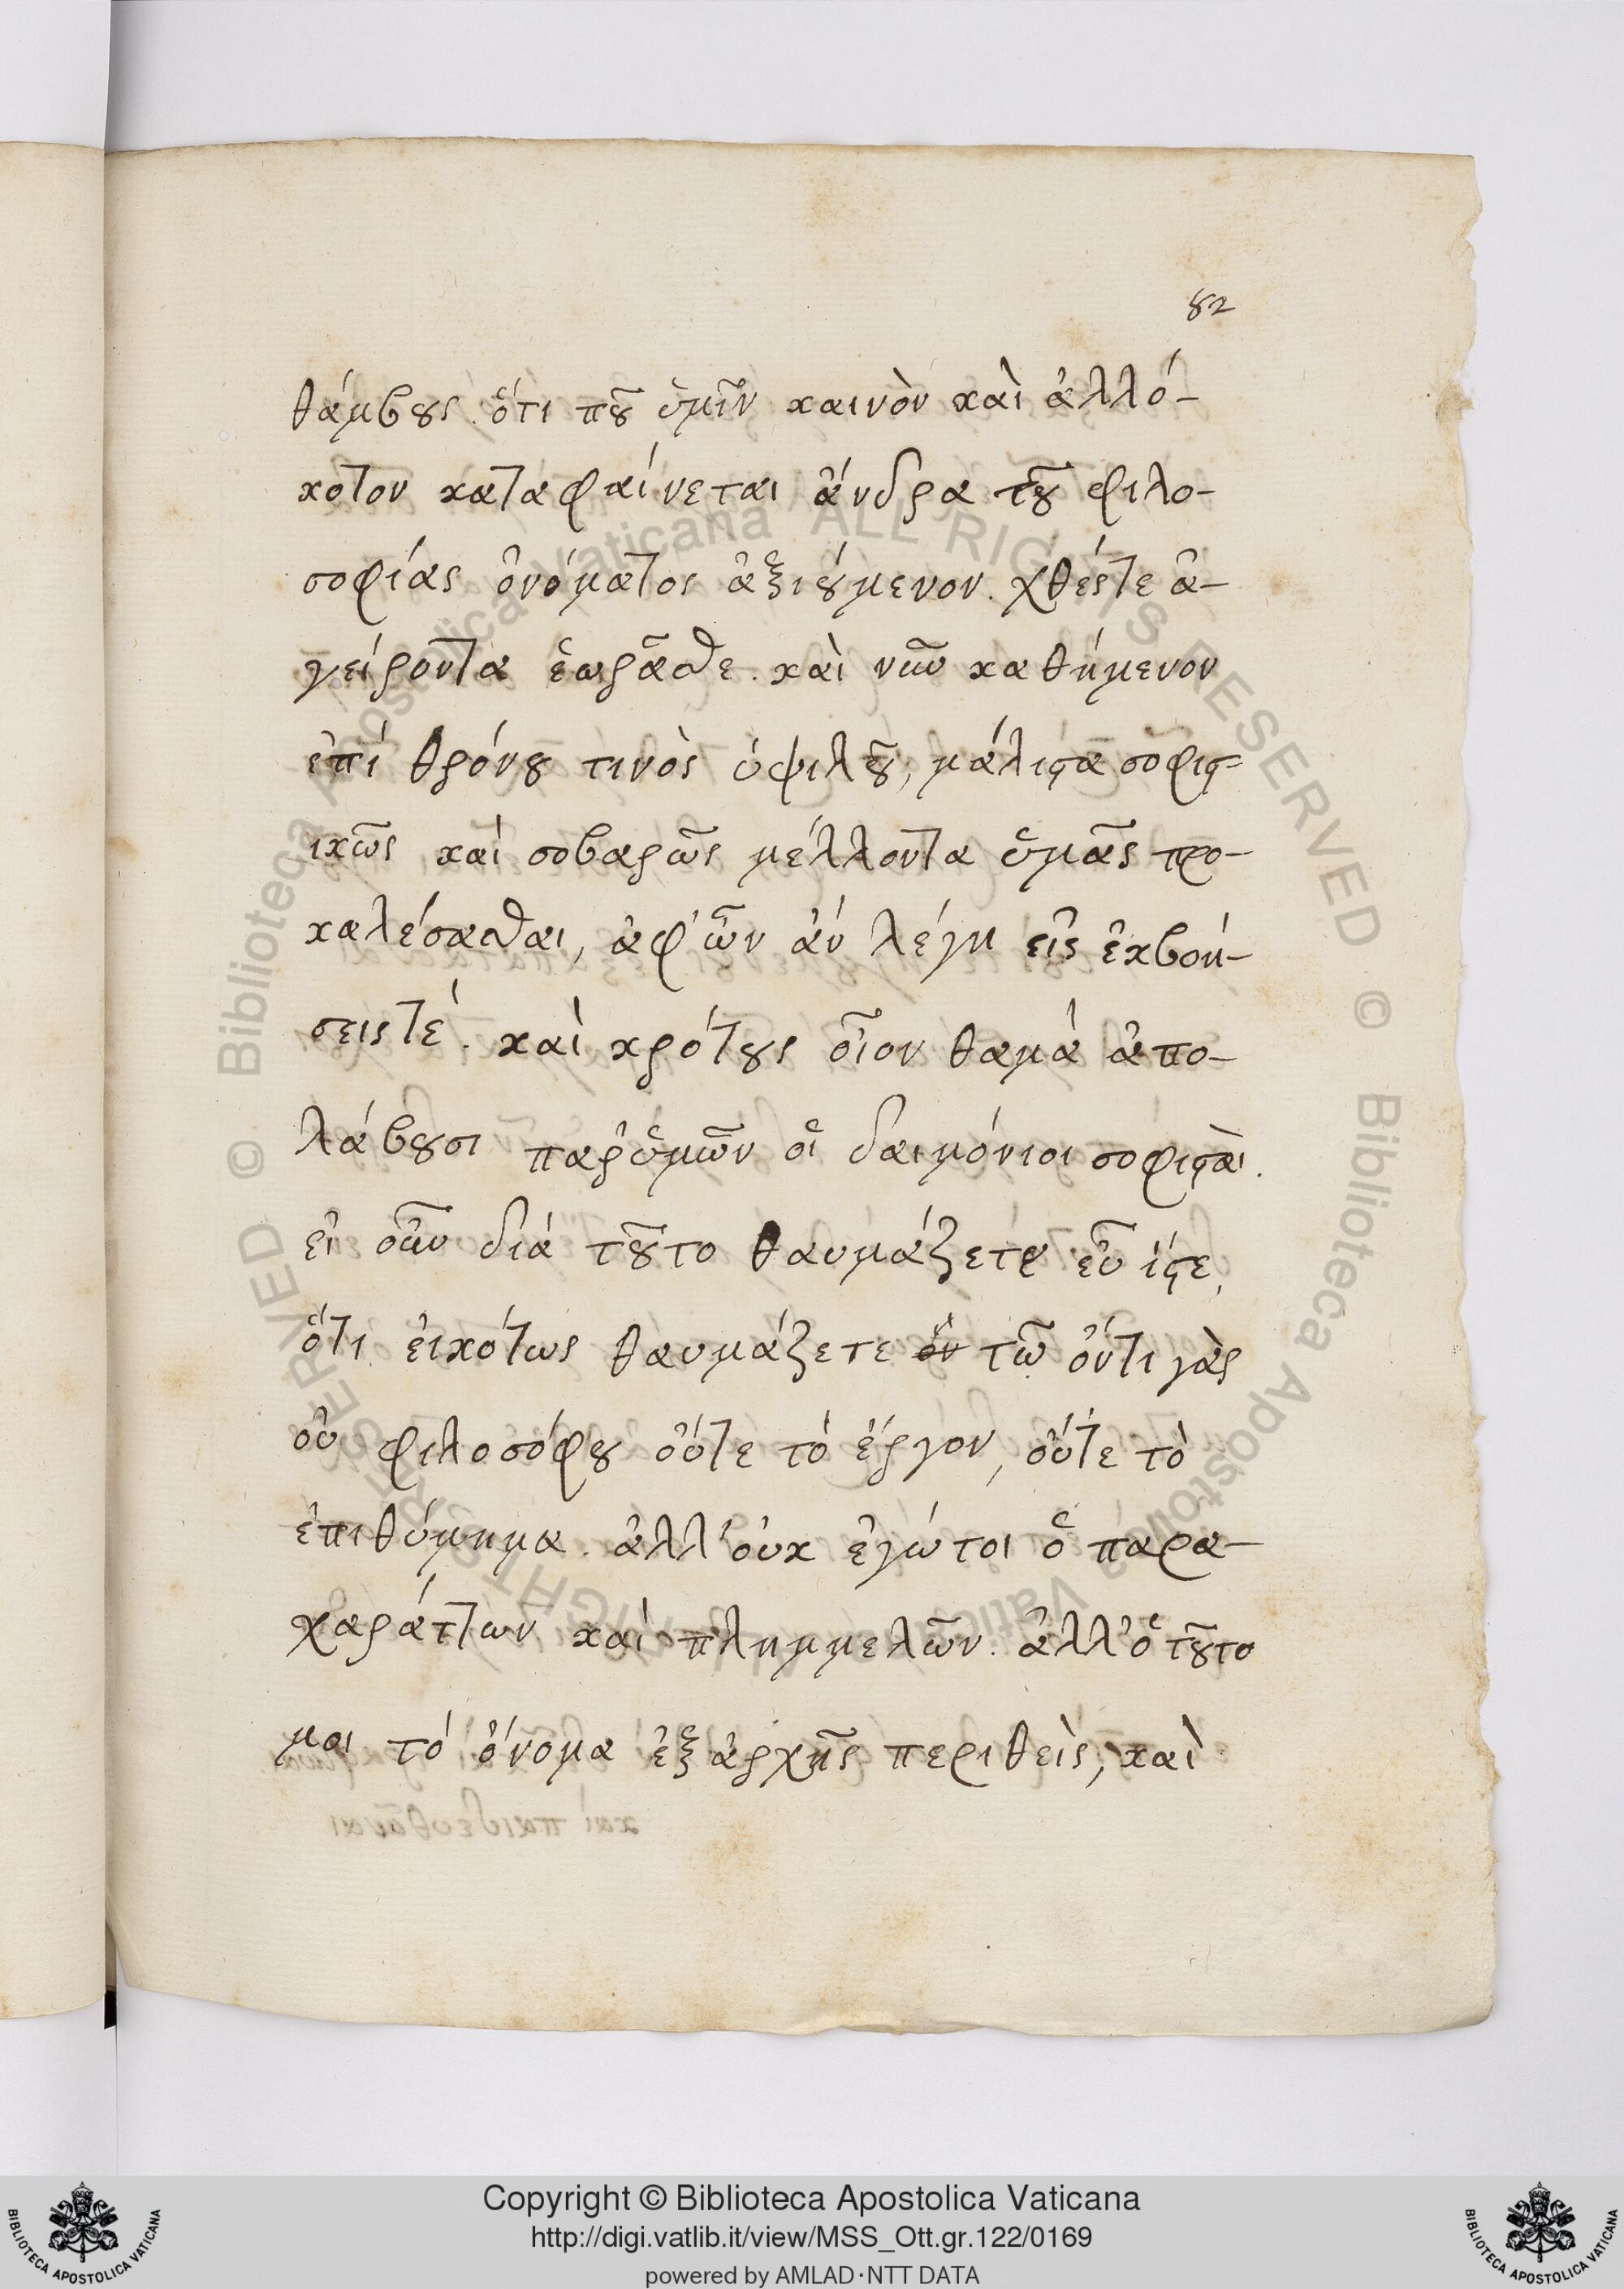 82
θάμβους. ὅτι ποῦ ὑμῖν καινὸν καὶ ἀλλό-
κοτον καταφαίνεται ἄνδρα τοῦ φιλο-
σοφίας ὀνόματος ἀξιούμενον. χθές τε ἀ-
γείροντα ἑωρᾶσθε. καὶ νῦν καθήμενον
ἐπί θρόνου τινὸς ὑψιλοῦ, μάλιστα σοφιστ-
ικῶς καί σοβαρῶς μέλλοντα ὑμᾶς προ-
καλέσασθαι, ἀφ' ὧν ἄν λέγη εἰς ἐκβοή-
σεις τέ. καὶ κρότους οἷον θαμά ἀπο-
λάβουσι παρ' ὑμῶν οἱ δαιμόνιοι σοφισταὶ.
εἰ οὖν διά τοῦτο θαυμάζετε εὖ ἴστε,
ὅτι εἰκότως θαυμάζετε ὅν τῶ ὄντι γὰρ
οὐ φιλοσόφου οὔτε τό ἔργον, οὔτε τὸ
ἐπιθύμημα. ἀλλ' οὐκ ἐγώ τοι ὁ παρα-
χαράττων καί πλημμελῶν. ἀλλ' ὁ τοῦτο
μοι τό ὄνομα ἐξ ἀρχῆς περιθεὶς, καὶ
Copyright © Biblioteca Apostolica Vaticana
http://digi.vatlib.it/view/MSS_Ott.gr.122/0169
powered by AMLAD·NTT DATA
BIBLIOTECA APOSTOLICA VATICANA
BIBLIOTECA APOSTOLICA VATICANA
© Biblioteca Apostolica Vaticana ALL RIGHTS RESERVED © Biblioteca Apostolica Vaticana ALL RIGHTS RESERVED